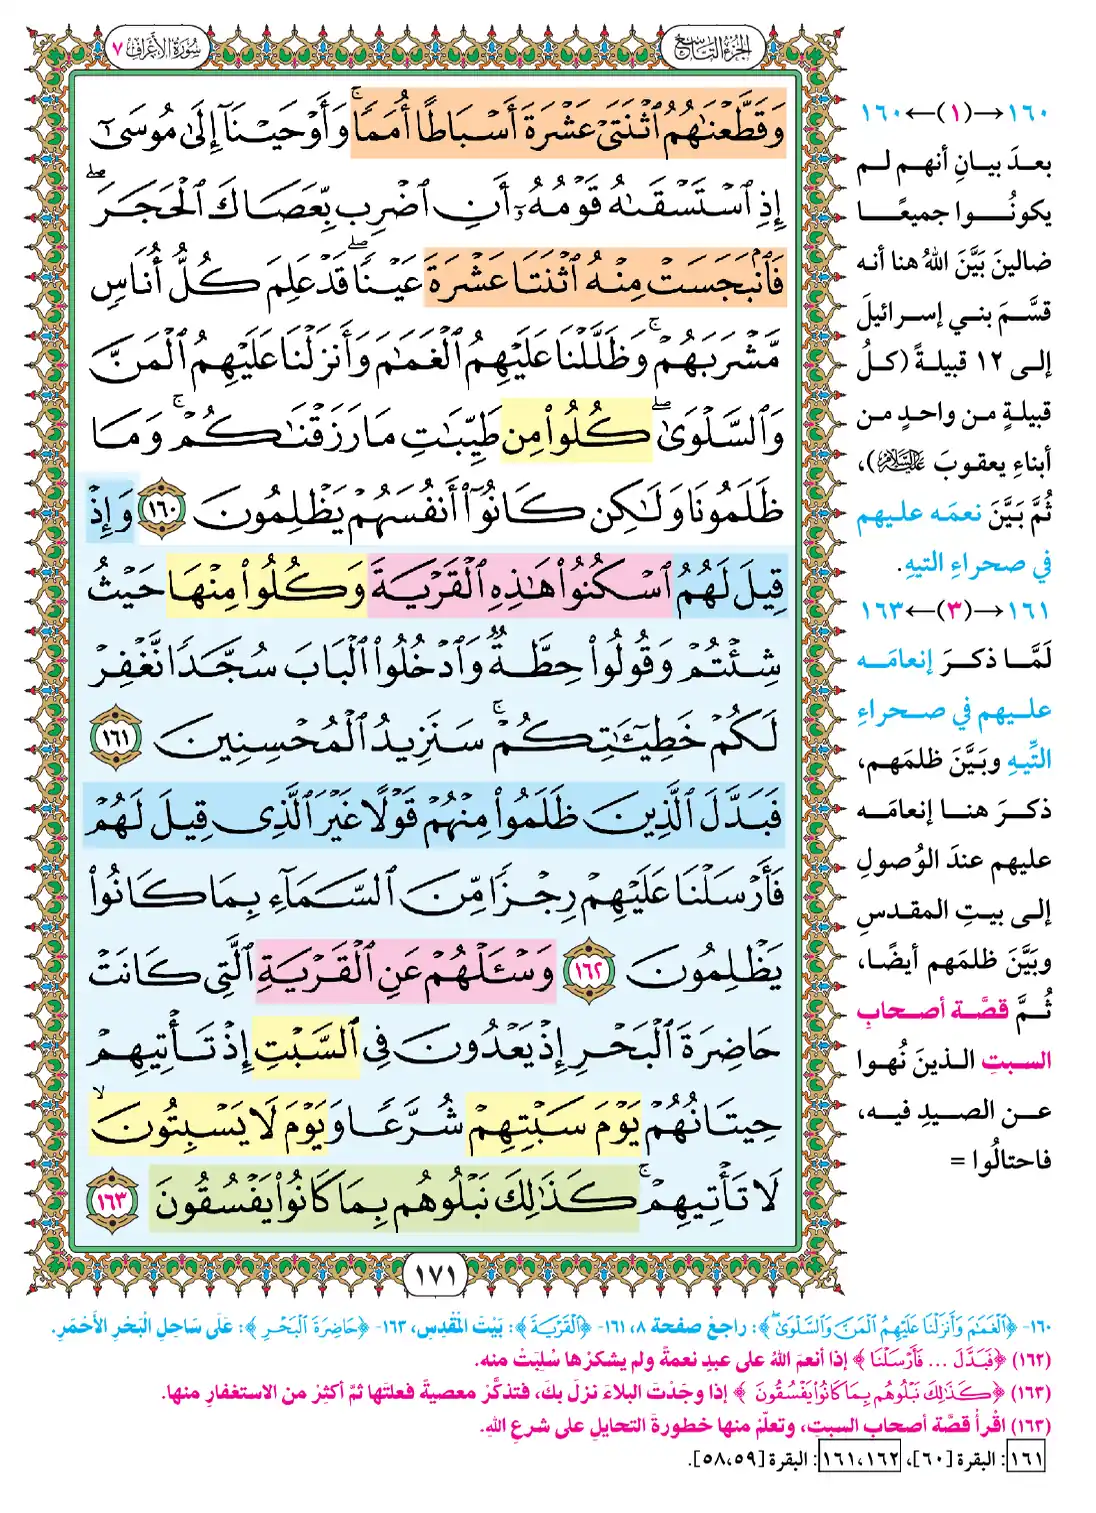 الجزء التاسع
سورة الأعراف ٧
وَقَطَّعْنَٰهُمُ ٱثْنَتَىْ عَشْرَةَ أَسْبَاطًا أُمَمًا ۚ وَأَوْحَيْنَآ إِلَىٰ مُوسَىٰٓ
إِذِ ٱسْتَسْقَىٰهُ قَوْمُهُۥٓ أَنِ ٱضْرِب بِّعَصَاكَ ٱلْحَجَرَ ۖ
فَٱنۢبَجَسَتْ مِنْهُ ٱثْنَتَا عَشْرَةَ عَيْنًا ۖ قَدْ عَلِمَ كُلُّ أُنَاسٍ
مَّشْرَبَهُمْ ۚ وَظَلَّلْنَا عَلَيْهِمُ ٱلْغَمَٰمَ وَأَنزَلْنَا عَلَيْهِمُ ٱلْمَنَّ
وَٱلسَّلْوَىٰ ۖ كُلُوا۟ مِن طَيِّبَٰتِ مَا رَزَقْنَٰكُمْ ۚ وَمَا
ظَلَمُونَا وَلَٰكِن كَانُوٓا۟ أَنفُسَهُمْ يَظْلِمُونَ ١٦٠ وَإِذْ
قِيلَ لَهُمُ ٱسْكُنُوا۟ هَٰذِهِ ٱلْقَرْيَةَ وَكُلُوا۟ مِنْهَا حَيْثُ
شِئْتُمْ وَقُولُوا۟ حِطَّةٌ وَٱدْخُلُوا۟ ٱلْبَابَ سُجَّدًا نَّغْفِرْ
لَكُمْ خَطِيٓـَٰٔتِكُمْ ۚ سَنَزِيدُ ٱلْمُحْسِنِينَ ١٦١
فَبَدَّلَ ٱلَّذِينَ ظَلَمُوا۟ مِنْهُمْ قَوْلًا غَيْرَ ٱلَّذِى قِيلَ لَهُمْ
فَأَرْسَلْنَا عَلَيْهِمْ رِجْزًا مِّنَ ٱلسَّمَآءِ بِمَا كَانُوا۟
يَظْلِمُونَ ١٦٢ وَسْـَٔلْهُمْ عَنِ ٱلْقَرْيَةِ ٱلَّتِى كَانَتْ
حَاضِرَةَ ٱلْبَحْرِ إِذْ يَعْدُونَ فِى ٱلسَّبْتِ إِذْ تَأْتِيهِمْ
حِيتَانُهُمْ يَوْمَ سَبْتِهِمْ شُرَّعًا وَيَوْمَ لَا يَسْبِتُونَ ۙ
لَا تَأْتِيهِمْ ۚ كَذَٰلِكَ نَبْلُوهُم بِمَا كَانُوا۟ يَفْسُقُونَ ١٦٣
١٧١
١٦٠→(١)←١٦٠
بعدَ بيانِ أنهم لم
يكونُوا جميعًا
ضالينَ بَيَّنَ اللهُ هنا أنه
قسَّمَ بني إسرائيلَ
إلى ١٢ قبيلةً (كلُّ
قبيلةٍ من واحدٍ من
أبناءِ يعقوبَ عليه السلام)،
ثُمَّ بَيَّنَ نعمَه عليهم
في صحراءِ التيهِ.
١٦١→(٣)←١٦٣
لَمَّا ذكرَ إنعامَه
عليهم في صحراءِ
التِّيهِ وبَيَّنَ ظلمَهم،
ذكرَ هنا إنعامَه
عليهم عندَ الوُصولِ
إلى بيتِ المقدسِ
وبَيَّنَ ظلمَهم أيضًا،
ثُمَّ قصَّة أصحابِ
السبتِ الذينَ نُهوا
عن الصيدِ فيه،
فاحتالُوا =
١٦٠- ﴿ٱلْغَمَٰمَ وَأَنزَلْنَا عَلَيْهِمُ ٱلْمَنَّ وَٱلسَّلْوَىٰ ۖ﴾: راجع صفحة ٨، ١٦١- ﴿ٱلْقَرْيَةَ﴾: بَيْتَ الْمَقْدِسِ، ١٦٣- ﴿حَاضِرَةَ ٱلْبَحْرِ﴾: عَلَى سَاحِلِ الْبَحْرِ الأَحْمَرِ.
(١٦٢) ﴿فَبَدَّلَ ... فَأَرْسَلْنَا﴾ إذا أنعمَ اللهُ على عبدٍ نعمةً ولم يشكرْها سُلِبَتْ منه.
(١٦٣) ﴿كَذَٰلِكَ نَبْلُوهُم بِمَا كَانُوا۟ يَفْسُقُونَ﴾ إذا وجَدْتَ البلاءَ نزلَ بكَ، فتذكَّرْ معصيةً فعلتَها ثمَّ أكثِرْ من الاستغفارِ منها.
(١٦٣) اقْرأْ قصَّة أصحاب السبتِ، وتعلَّمْ منها خطورةَ التحايلِ على شرعِ اللهِ.
١٦١: البقرة [٦٠]، ١٦١،١٦٢: البقرة [٥٨،٥٩].